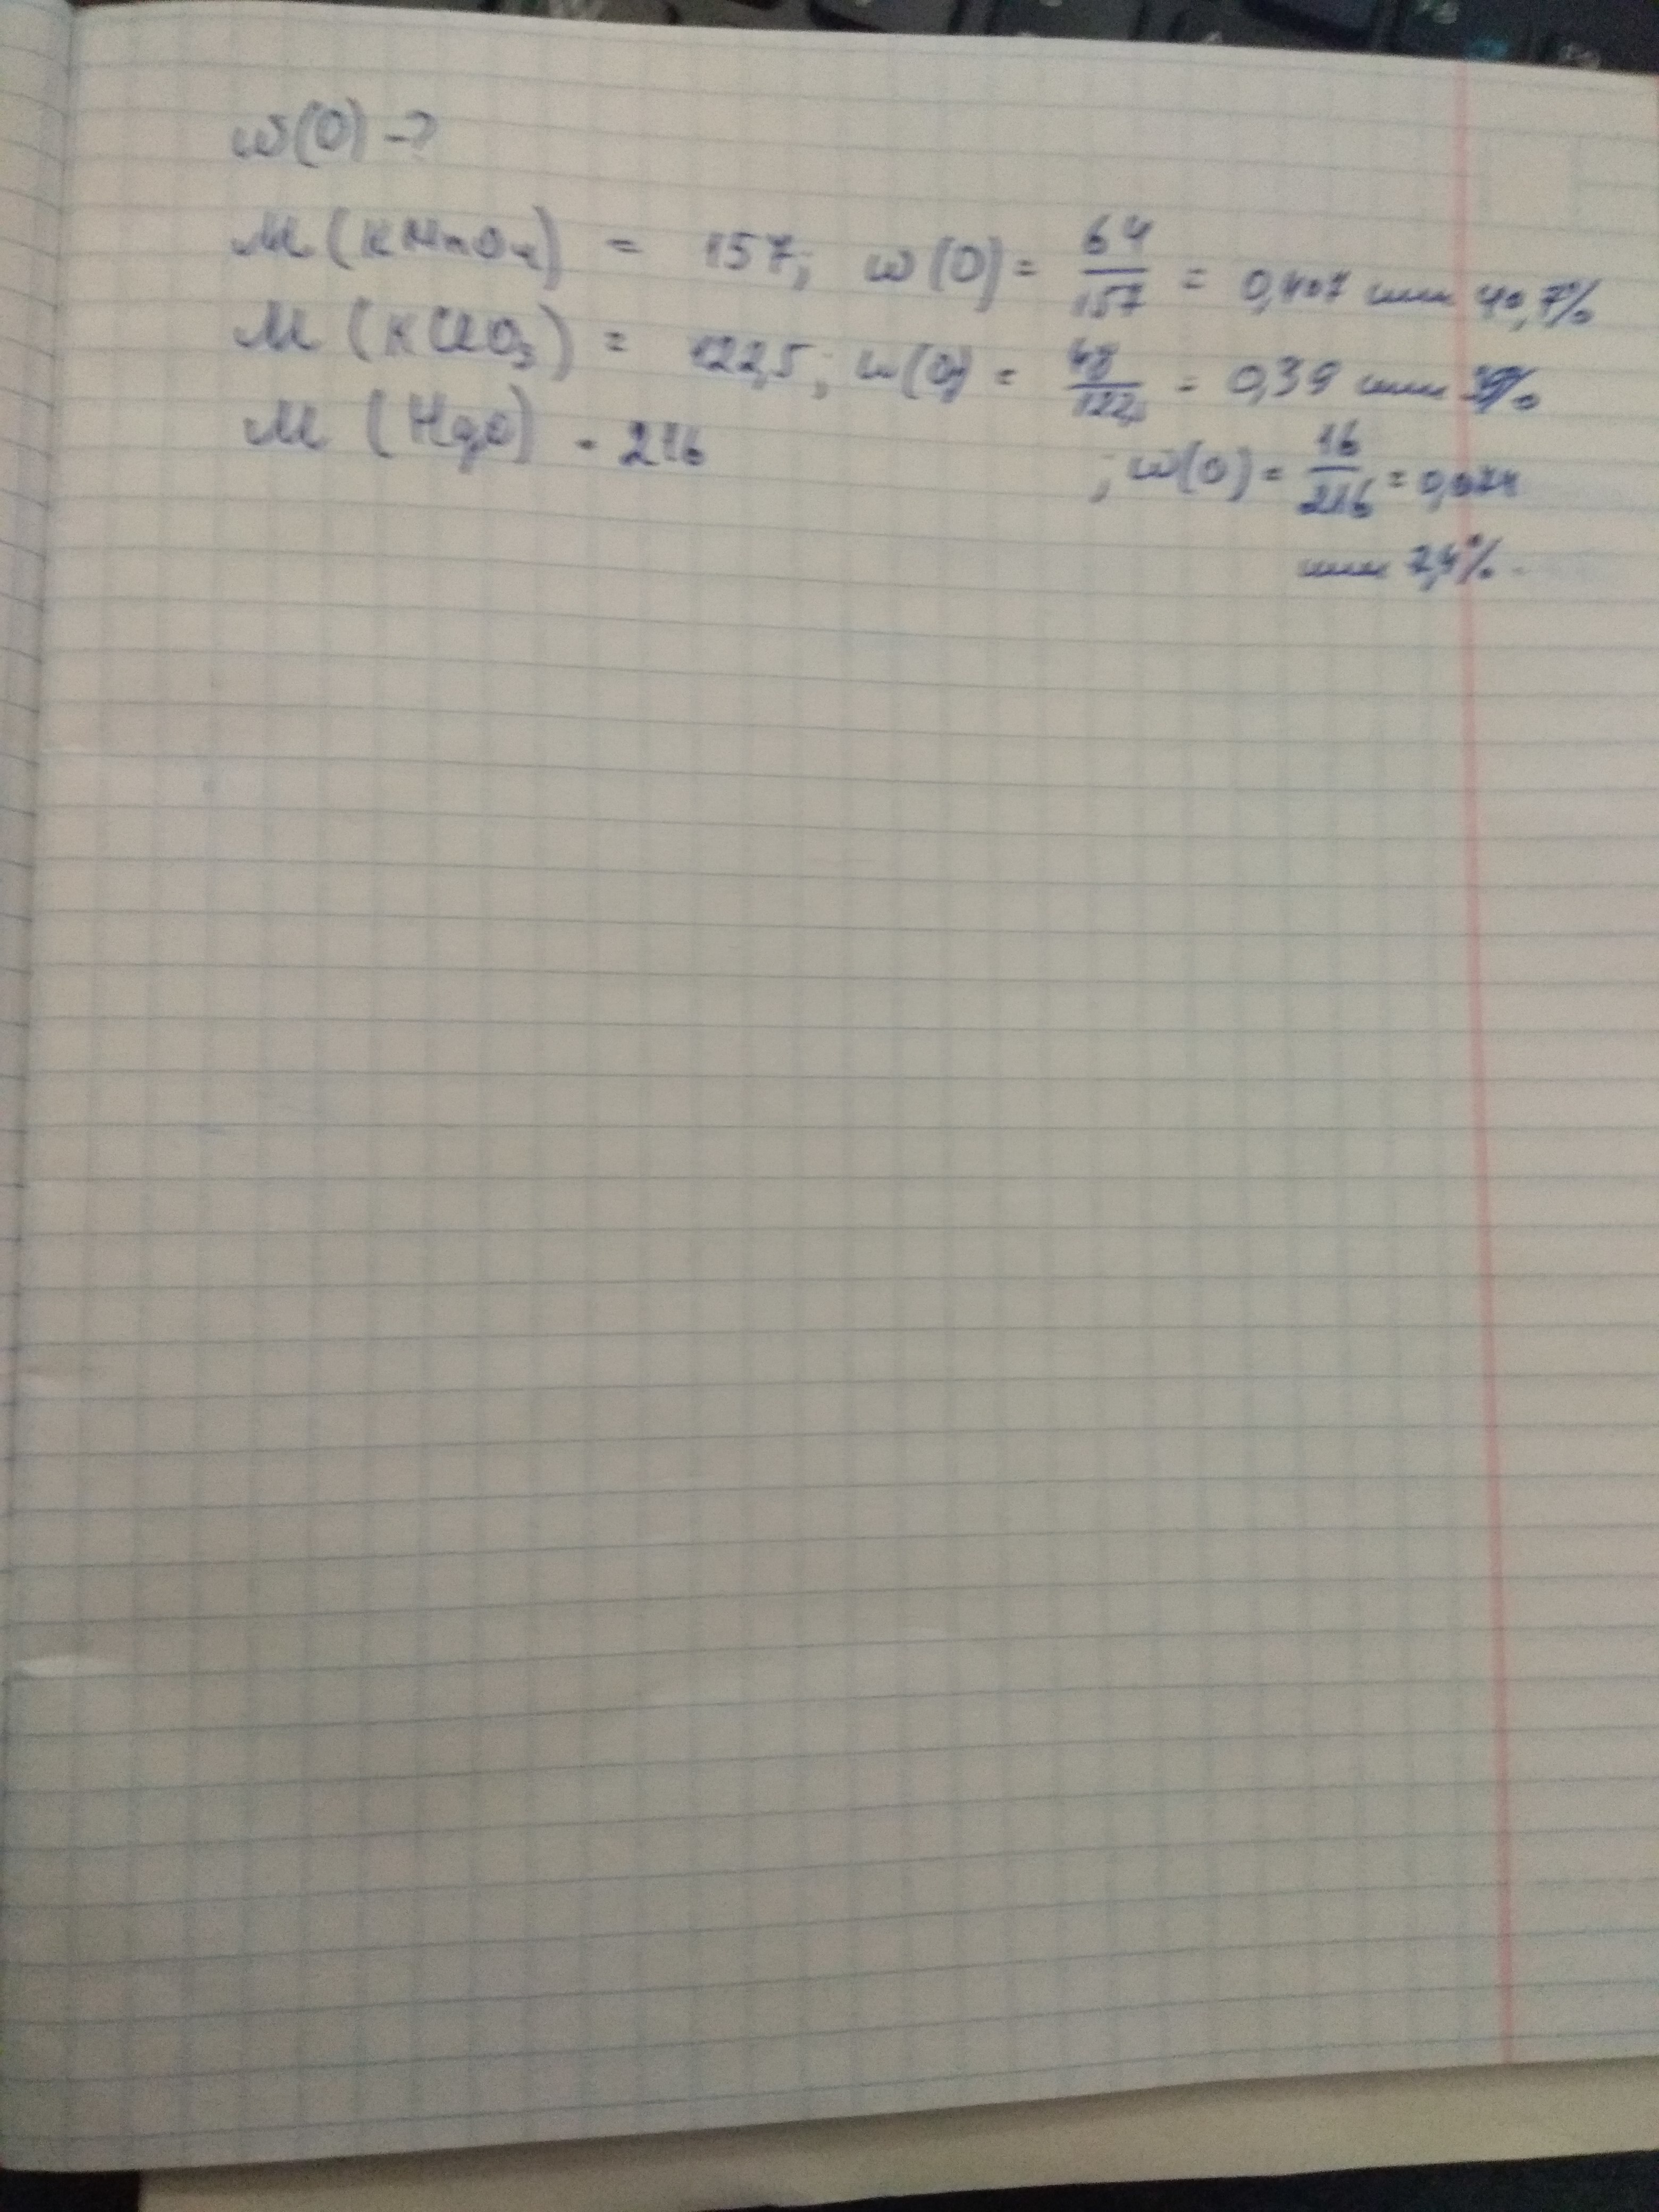 w(O) -?
M (KMnO₄) = 157; w(O) = 64/157 = 0,407 или 40,7%
M (KClO₃) = 122,5; w(O) = 48/122,5 = 0,39 или 39%
M (HgO) = 216 ; w(O) = 16/216 = 0,074
или 7,4%